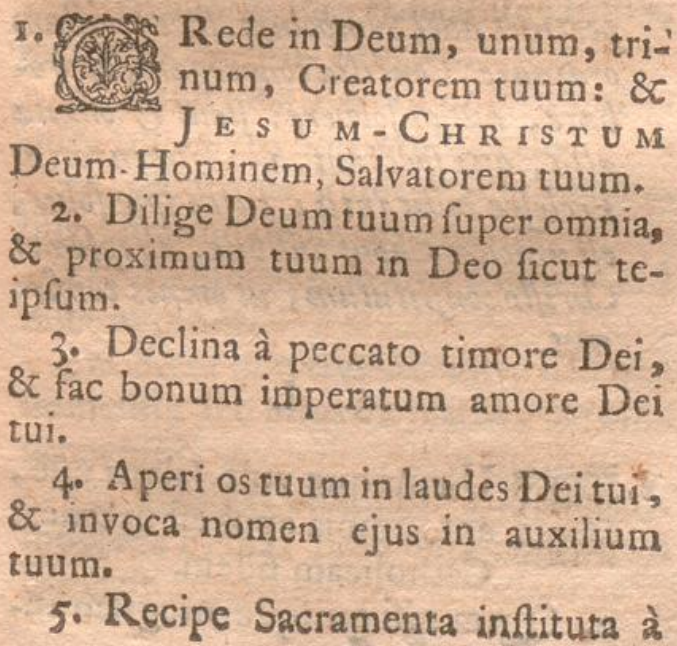 1. CRede in Deum, unum, tri-
num, Creatorem tuum: &
JESUM-CHRISTUM
Deum-Hominem, Salvatorem tuum.
2. Dilige Deum tuum ſuper omnia,
& proximum tuum in Deo ſicut te-
ipſum.
3. Declina à peccato timore Dei,
& fac bonum imperatum amore Dei
tui.
4. Aperi os tuum in laudes Dei tui,
& invoca nomen ejus in auxilium
tuum.
5. Recipe Sacramenta inſtituta à